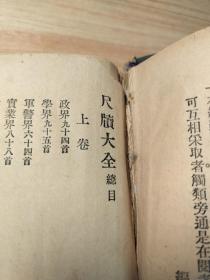 下
可互相采取者觸類旁通是在閱
編
尺牘大全 總目
上卷
政界九十四首
學界九十五首
軍警界六十四首
實業界八十八首